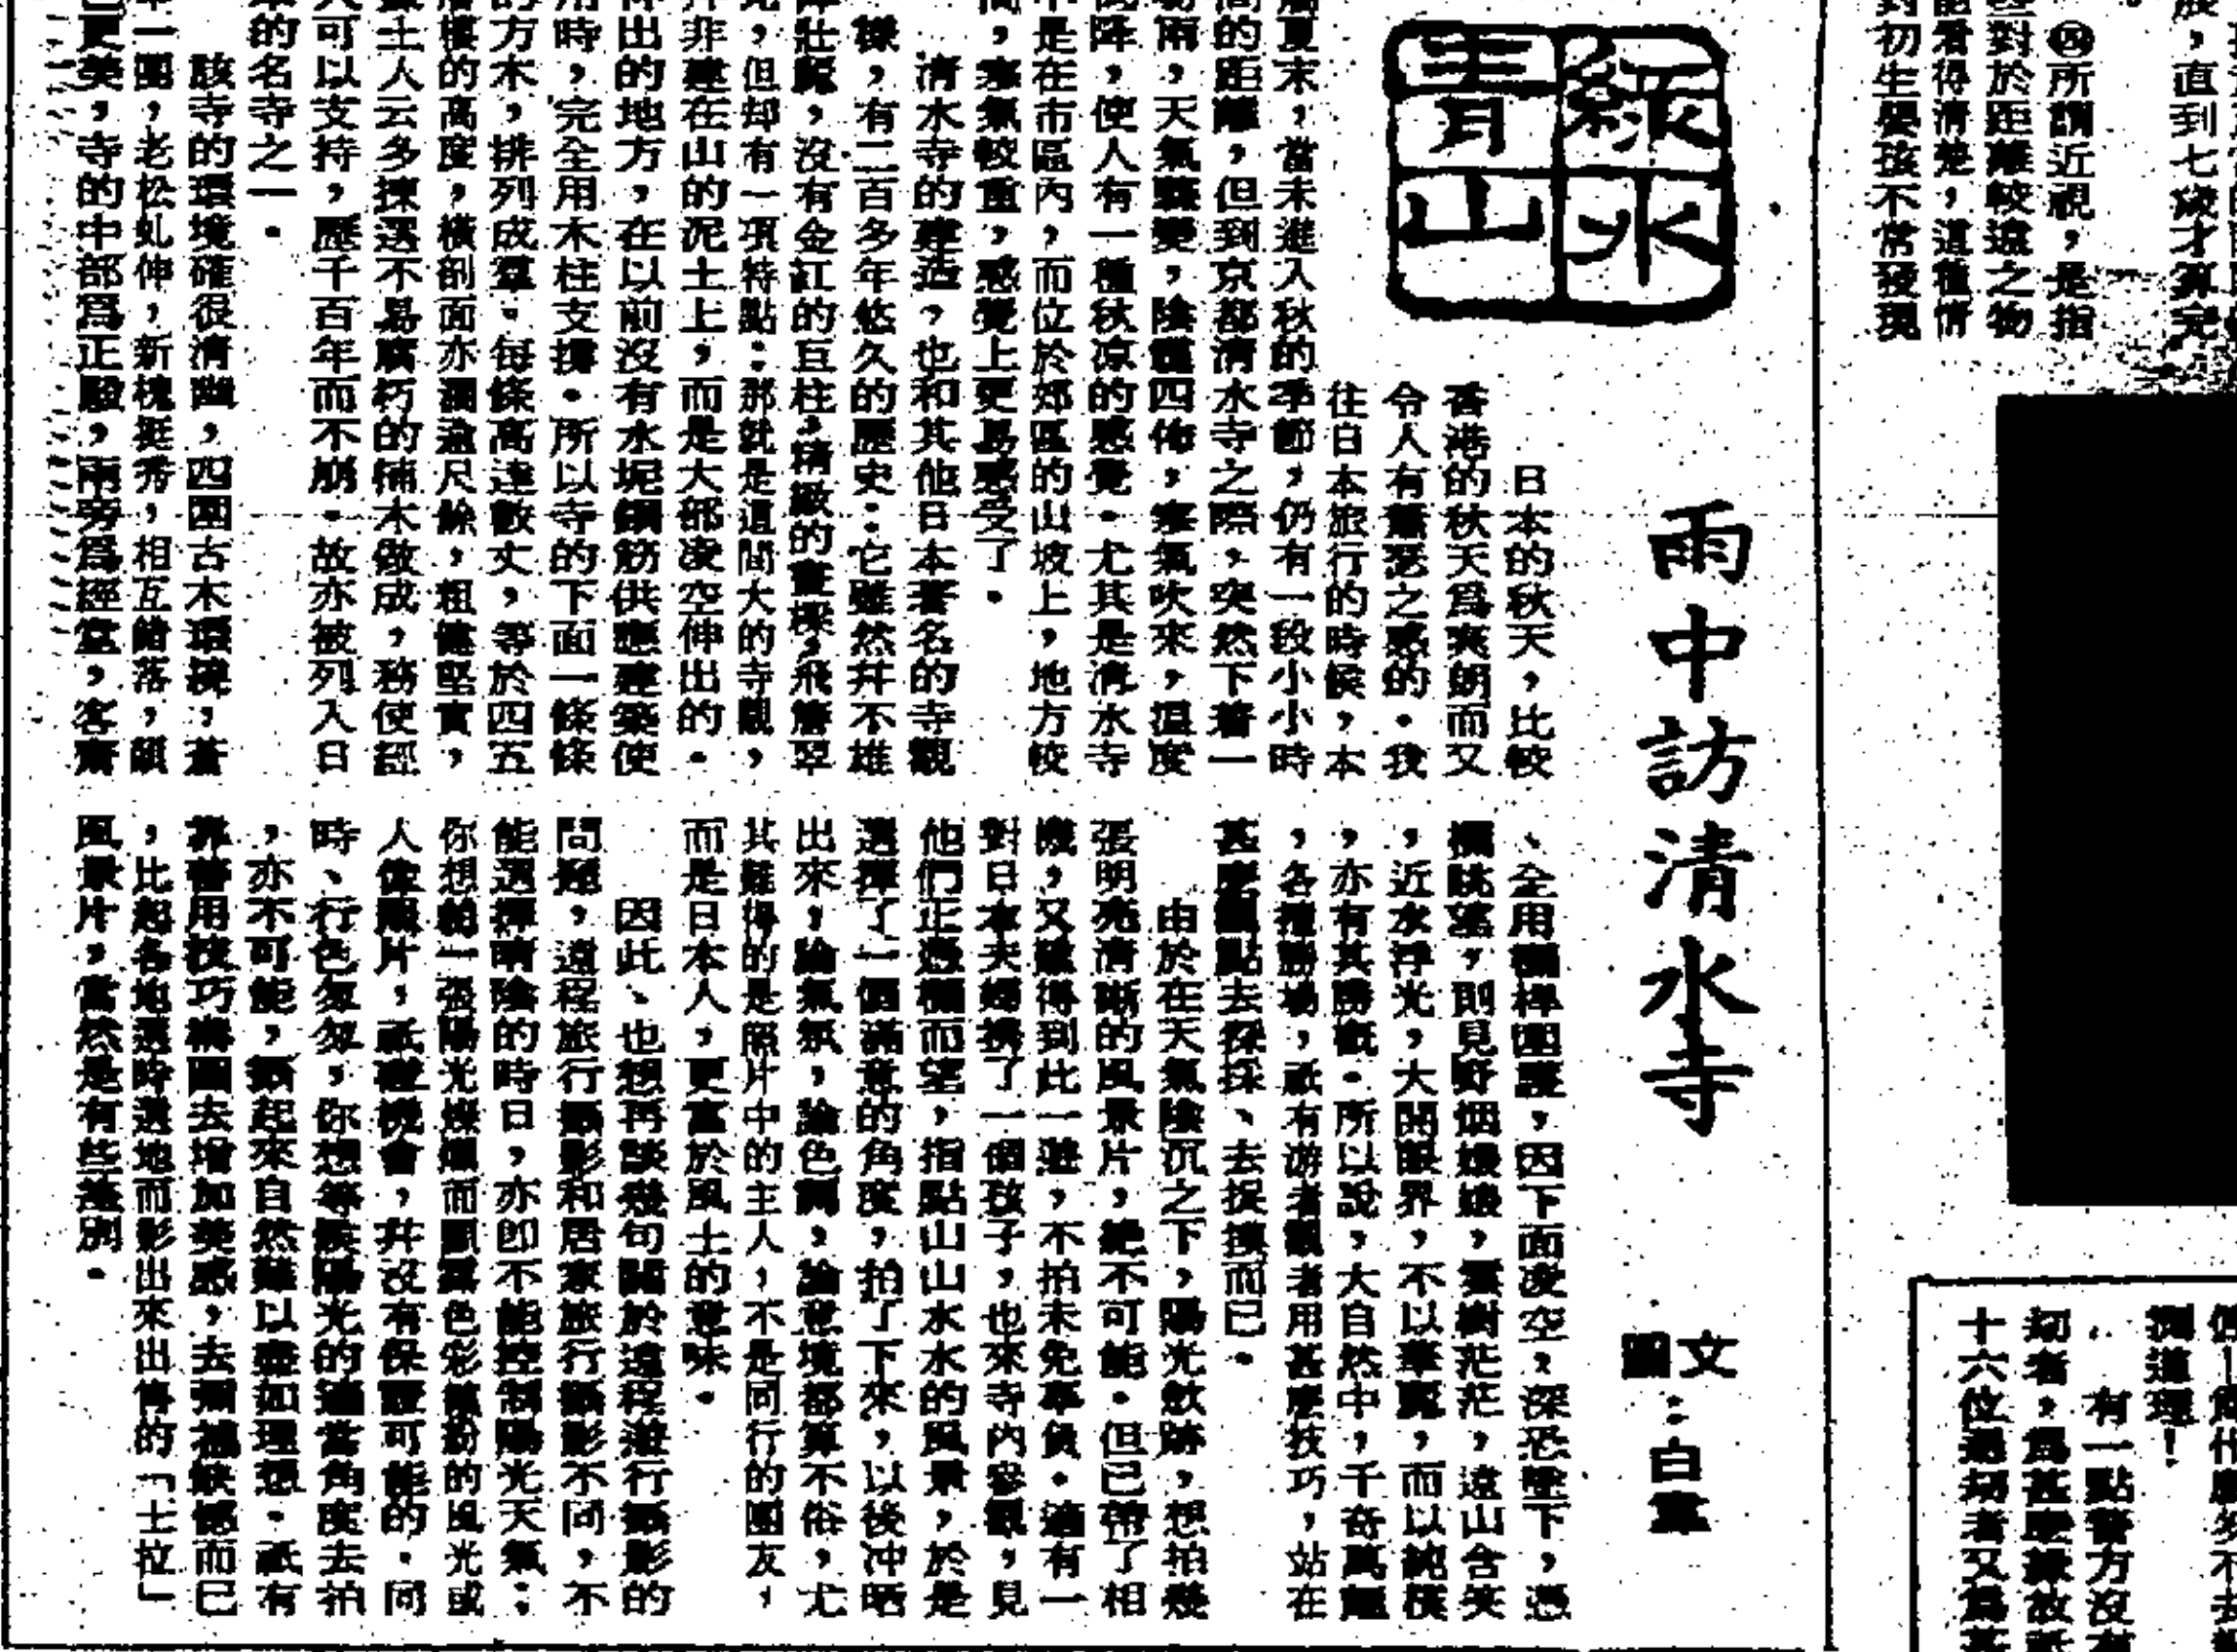 綠水
青山
雨中訪清水寺
文
圖：白雲
日本的秋天，比較
香港的秋天爲爽朗而又
令人有蕭瑟之感的。我
往日本旅行的時候，本
屬夏末，當未進入秋的季節，仍有一段小小時
間的距離，但到京都清水寺之際，突然下着一
場雨，天氣驟變，陰霾四佈，寒氣吹來，溫度
降，使人有一種秋凉的感覺。尤其是清水寺
不是在市區內，而位於郊區的山坡上，地方較
，寒氣較重，感覺上更易感受了。
清水寺的建造，也和其他日本著名的寺觀
樣，有二百多年悠久的歷史：它雖然并不雄
壯麗，沒有金紅的巨柱，精緻的畫樑，飛簷翠
，但却有一項特點：那就是這間大的寺觀，
并非建在山的泥土上，而是大部凌空伸出的。
伸出的地方，在以前沒有水坭鋼筋供應建築使
用時，完全用木柱支撐。所以寺的下面一條條
的方木，排列成羣。每條高達數丈，等於四五
層樓的高度，橫剖面亦濶逾尺餘，粗健堅實，
據土人云多揀選不易腐朽的楠木做成，務使經
久可以支持，歷千百年而不崩。故亦被列入日
的名寺之一。
該寺的環境確很清幽，四圍古木環繞，蒼
一團，老松虬伸，新槐挺秀，相互錯落，頗
更美，寺的中部爲正殿，兩旁爲經堂，客齋
、全用欄桿圍護，因下面凌空，深恐墮下，憑
欄眺望，則見野烟嬝嬝，雲樹茫茫，遠山含笑
，近水浮光，大開眼界，不以華麗，而以純樸
，亦有其勝概。所以說，大自然中，千奇萬麗
，各擅勝場，祇有游者觀者用甚麽技巧，站在
甚麽觀點去探採、去捉摸而已。
由於在天氣陰沉之下，陽光斂跡，想拍幾
張明亮清晰的風景片，絕不可能。但已帶了相
機，又難得到此一遊，不拍未免辜負。適有一
對日本夫婦携了一個孩子，也來寺內參觀，見
他們正憑欄而望，指點山山水水的風景，於是
選擇了一個滿意的角度，拍了下來，以後冲晒
出來，論氣氛，論色調，論意境都算不俗，尤
其難得的是照片中的主人，不是同行的團友，
而是日本人，更富於風土的意味。
因此、也想再談幾句關於遠程遊行攝影的
問題，遠程旅行攝影和居家旅行攝影不同，不
能選擇晴陰的時日，亦即不能控制陽光天氣；
你想拍一張陽光燦爛而顯露色彩繽紛的風光或
人像照片，祇碰機會，并沒有保證可能的。同
時、行色匆匆，你想等候陽光的適當角度去拍
，亦不可能，攝起來自然難以盡如理想。祇有
靠善用技巧構圖去增加美感，去彌補缺憾而已
，比起各地選時選地而影出來出售的「士拉」
風景片，當然是有些差別。
，直到七歲才算完
㈣所謂近視，是指
對於距離較遠之物
能看得清楚，這種情
對初生嬰孩不常發現
測道理！
有一點警方沒有
刧者，爲甚麽
十六位過刧者又爲甚